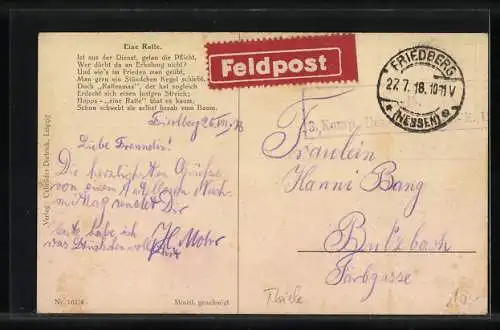 Eine Ratte.
Ist aus der Dienst, getan die Pflicht,
Wer dürft da an Erholung nicht?
Und wie's im Frieden man geübt,
Man gern ein Ständchen Kegel schiebt.
Doch „Rattenaas", der hat sogleich
Erdacht sich einen lustgen Streich;
Hopps - „eine Ratte" tönt es kaum,
Schon schwebt sie selbst herab vom Baum.
Feldpost
FRIEDBERG
27.7.18. 10-11 V
* (HESSEN) *
Friedberg 26.VII.18
Liebe Freundin!
Die herzlichsten Grüße
von einem
mittag sendet Dir
H. Mohr
Heute habe ich
was
Fräulein
Hanni Bang
Butzbach
Färbgasse
Verlag Dietrich, Leipzig
Nr. 101/4
Musik. geschützt
Thiele